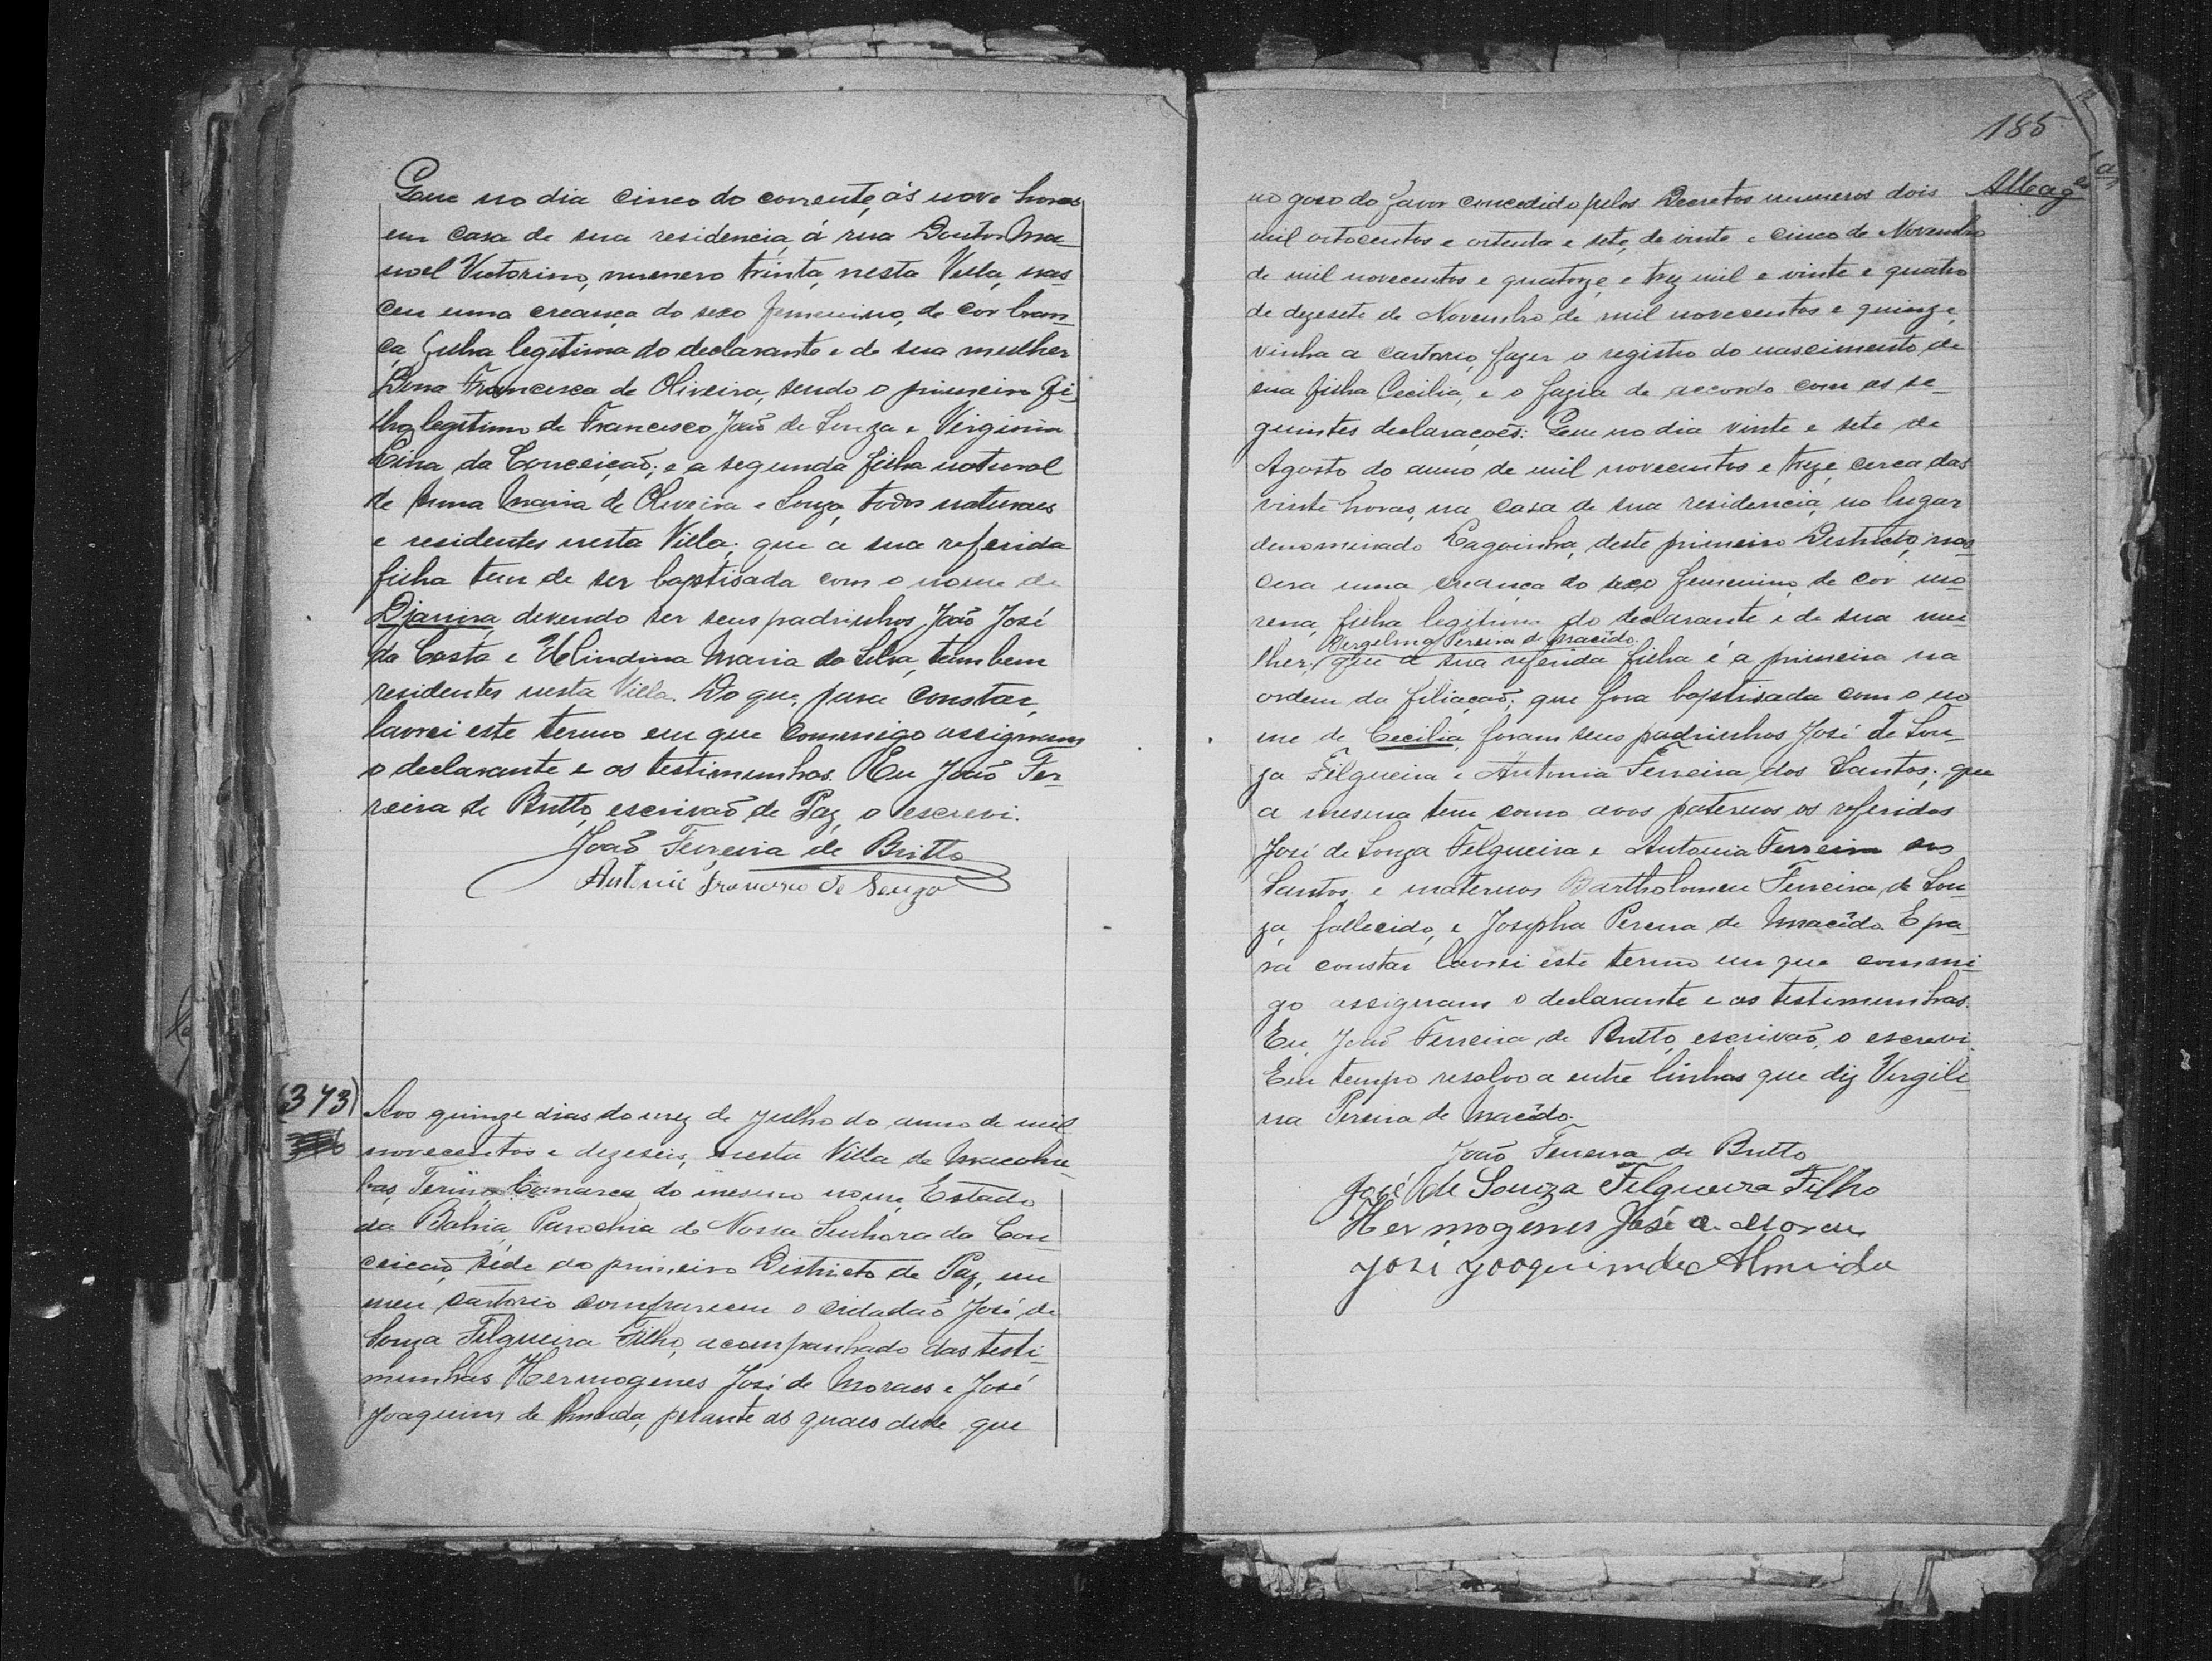 Que no dia cinco do corrente, ás nove horas
em casa de sua residencia, á rua Doutor Ma-
noel Victorino, numero trinta, nesta Villa, nas-
ceu uma creança do sexo femenino, de cor bran-
ca, filha legitima do declarante e de sua mulher
Francisca de Oliveira, sendo o primeiro fi-
lho legitimo de Francisco João de Souza e Virginia
Lina da Conceição; e a segunda filha natural
de Anna Maria de Oliveira e Souza, todos naturaes
e residentes nesta Villa; que a sua referida
filha tem de ser baptisada com o nome de
Djanira, devendo ser seus padrinhos João José
da Costa e Maria da Silva, tambem
residentes nesta Villa. Do que, para constar,
lavrei este termo em que commigo assignam
o declarante e as testimunhas. Eu João Fer-
reira de Britto, escrivão de Paz, o escrevi.
João Ferreira de Britto
Antonio Francisco de Souza
(373)
Aos quinze dias do mez de Julho do anno de mil
novecentos e dezeseis, nesta Villa de Macahu-
bas, Termo, Comarca do mesmo nome, Estado
da Bahia, Parochia de Nossa Senhora da Con-
ceição, séde do primeiro Districto de Paz, em
meu cartorio compareceu o cidadão José de
Souza Filgueira Filho, acompanhado das testi-
munhas Hermogenes José de Moraes e José
Joaquim de Almeida, perante as quaes disse que
185
no goso do favor concedido pelos Decretos numeros dois
mil oitocentos e oitenta e sete, de vinte e cinco de Novembro
de mil novecentos e quatorze, e trez mil e vinte e quatro
de dezesete de Novembro de mil novecentos e quinze,
vinha a cartorio, fazer o registro do nascimento de
sua filha Cecilia, e o fazia de accordo com as se-
guintes declarações: Que no dia vinte e sete de
Agosto do anno de mil novecentos e treze, cerca das
vinte horas, na casa de sua residencia, no lugar
denominado Lagoinha, deste primeiro Districto, nas-
cera uma creança do sexo femenino, de cor mo-
rena, filha legitima do declarante e de sua mu-
Vergelina Pereira de Macêdo.
lher, que a sua referida filha é a primeira na
ordem da filiação; que fora baptisada com o no-
me de Cecilia, foram seus padrinhos José de Sou-
za Filgueira e Antonia Ferreira dos Santos; que
a mesma tem como avos paternos os referidos
José de Souza Felgueira e Antonia Ferreira dos
Santos, e maternos Bartholomeu Ferreira de Sou-
za, fallecido, e Josepha Pereira de Macêdo. E pa-
ra constar lavrei este termo em que commi-
go assignam o declarante e as testimunhas.
Eu, João Ferreira de Britto, escrivão, o escrevi.
Em tempo resalvo a entre linhas que diz Vergili-
na Pereira de Macêdo.
João Ferreira de Britto
José de Souza Filgueira Filho
Hermogenes José de Moraes
José Joaquim de Almeida